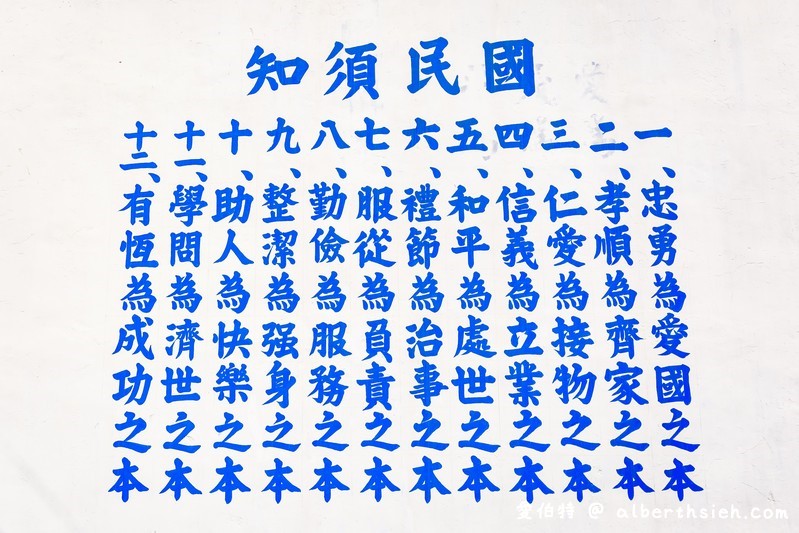 國民須知
一、忠勇為愛國之本
二、孝順為齊家之本
三、仁愛為接物之本
四、信義為立業之本
五、和平為處世之本
六、禮節為治事之本
七、服從為負責之本
八、勤儉為服務之本
九、整潔為强身之本
十、助人為快樂之本
十一、學問為濟世之本
十二、有恆為成功之本
愛伯特 @ alberthsieh.com